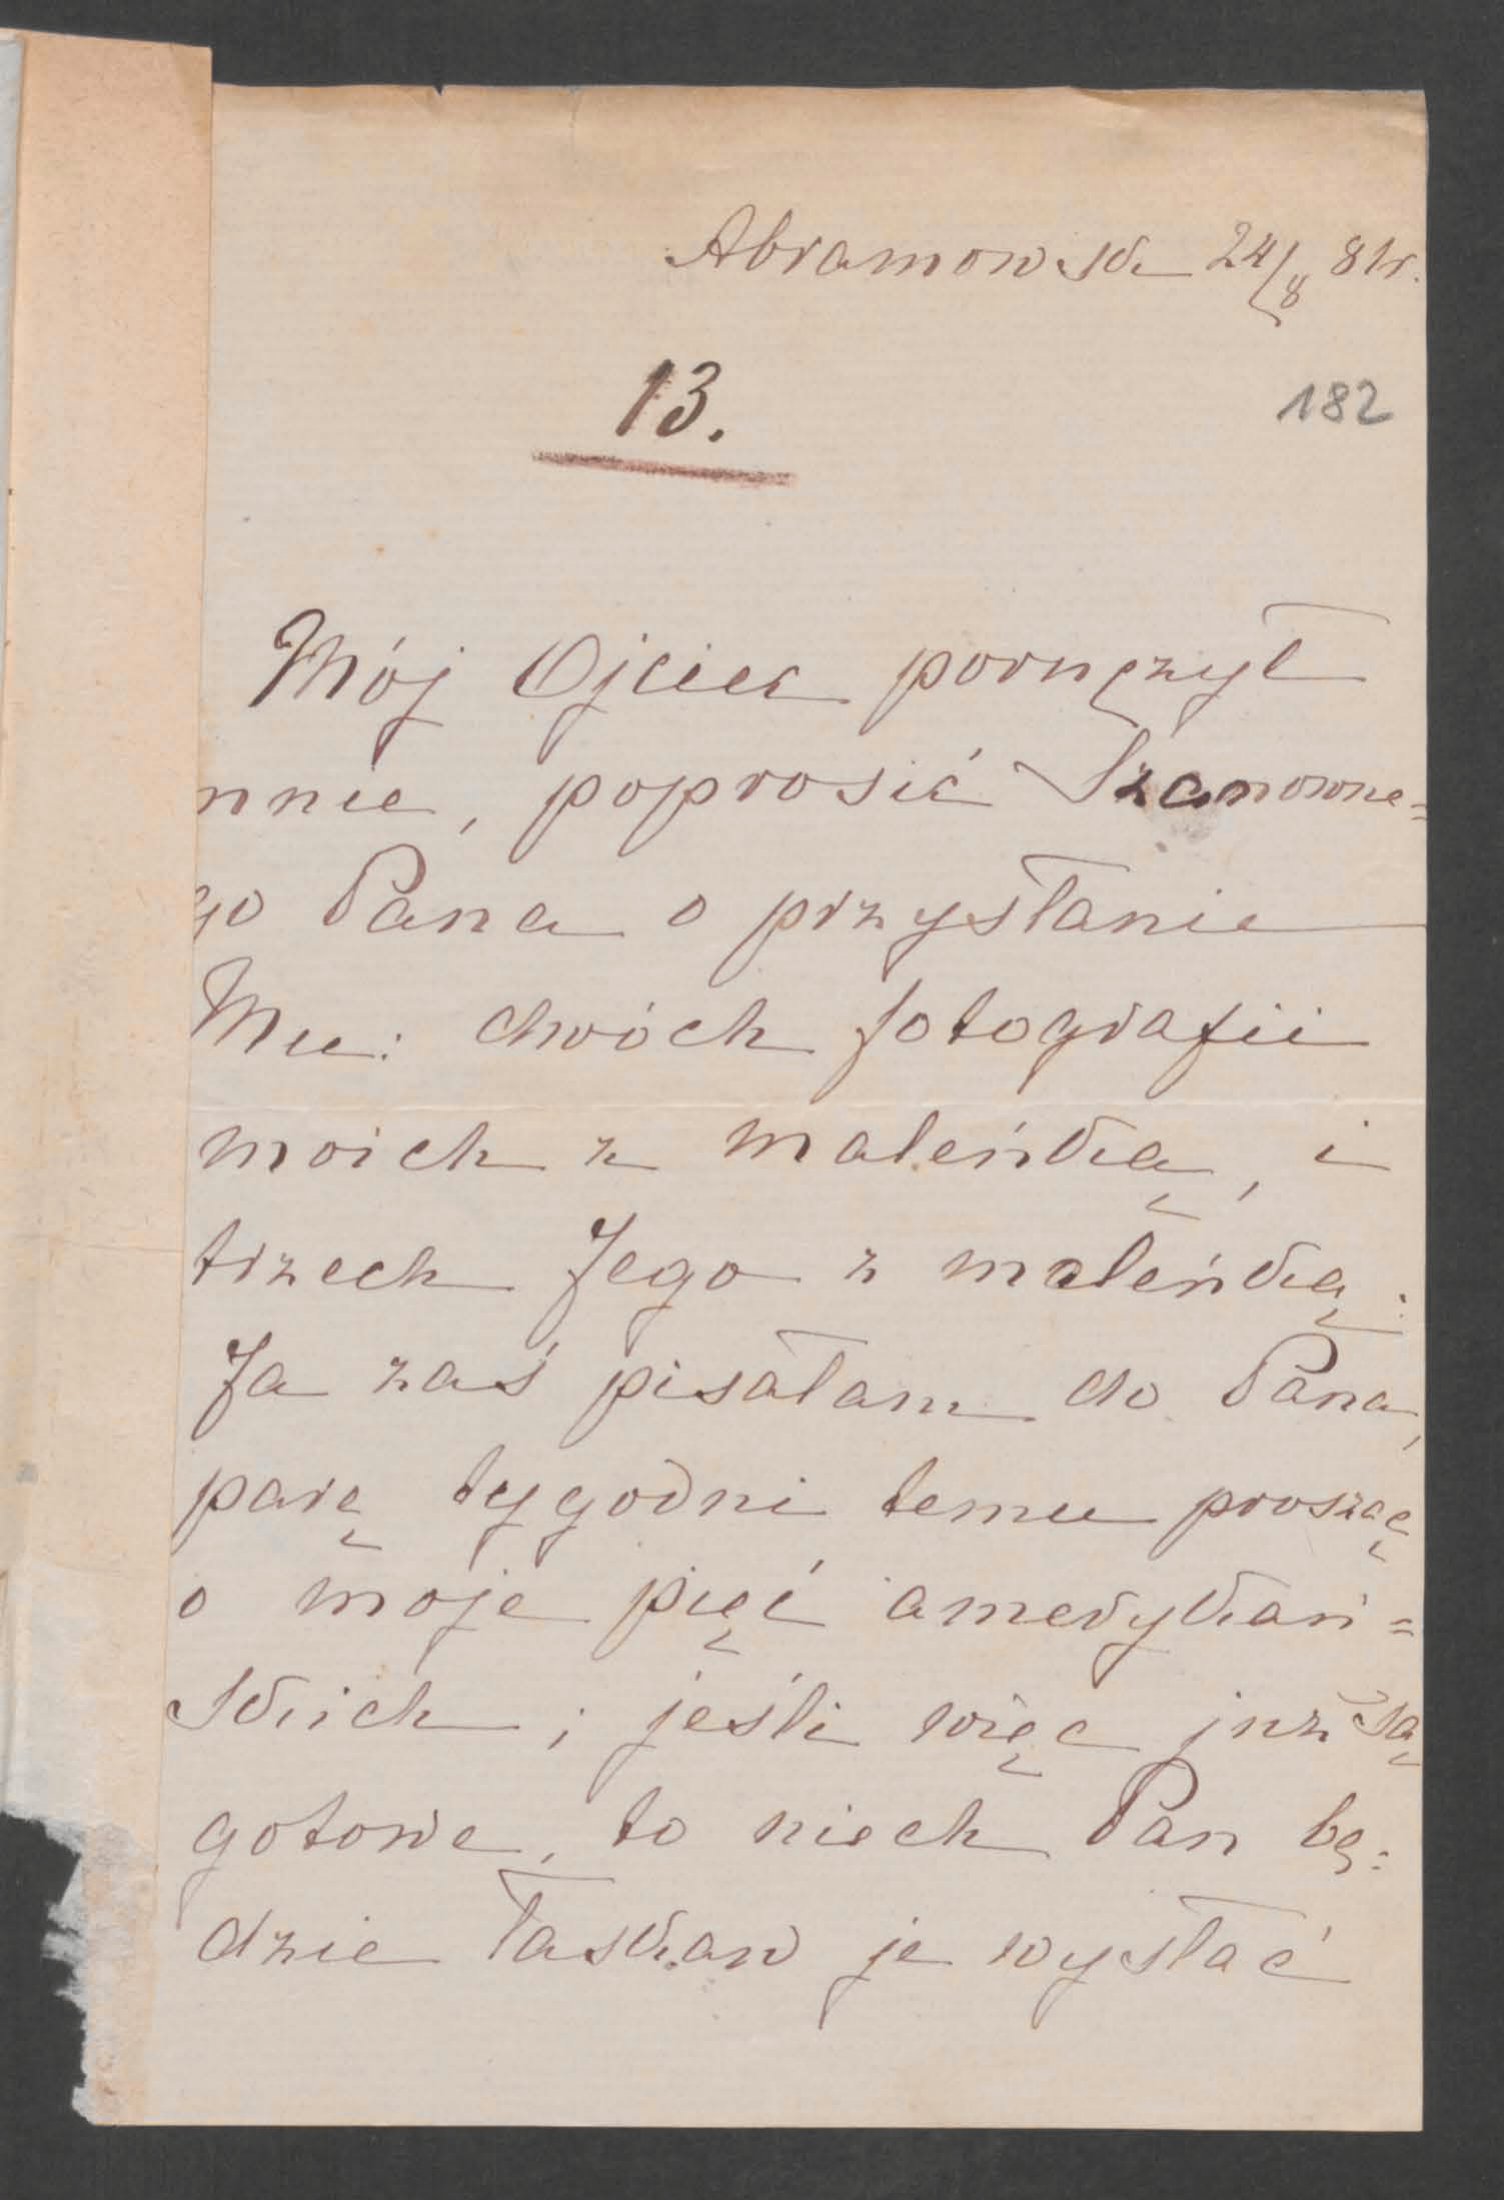 Abramowska 24/8 81r.
13.
182
Mój Ojciec poruczył
mnie, poprosić Szanowne=
go Pana o przysłanie
Mu: dwóch fotografii
moich z maleńką, i
trzech Jego z maleńką.
Ja zaś pisałam do Pana,
parę tygodni temu prosząc
o moje pięć amerykań=
skich; jeśli więc już są
gotowe, to niech Pan bę=
dzie łaskaw je wysłać